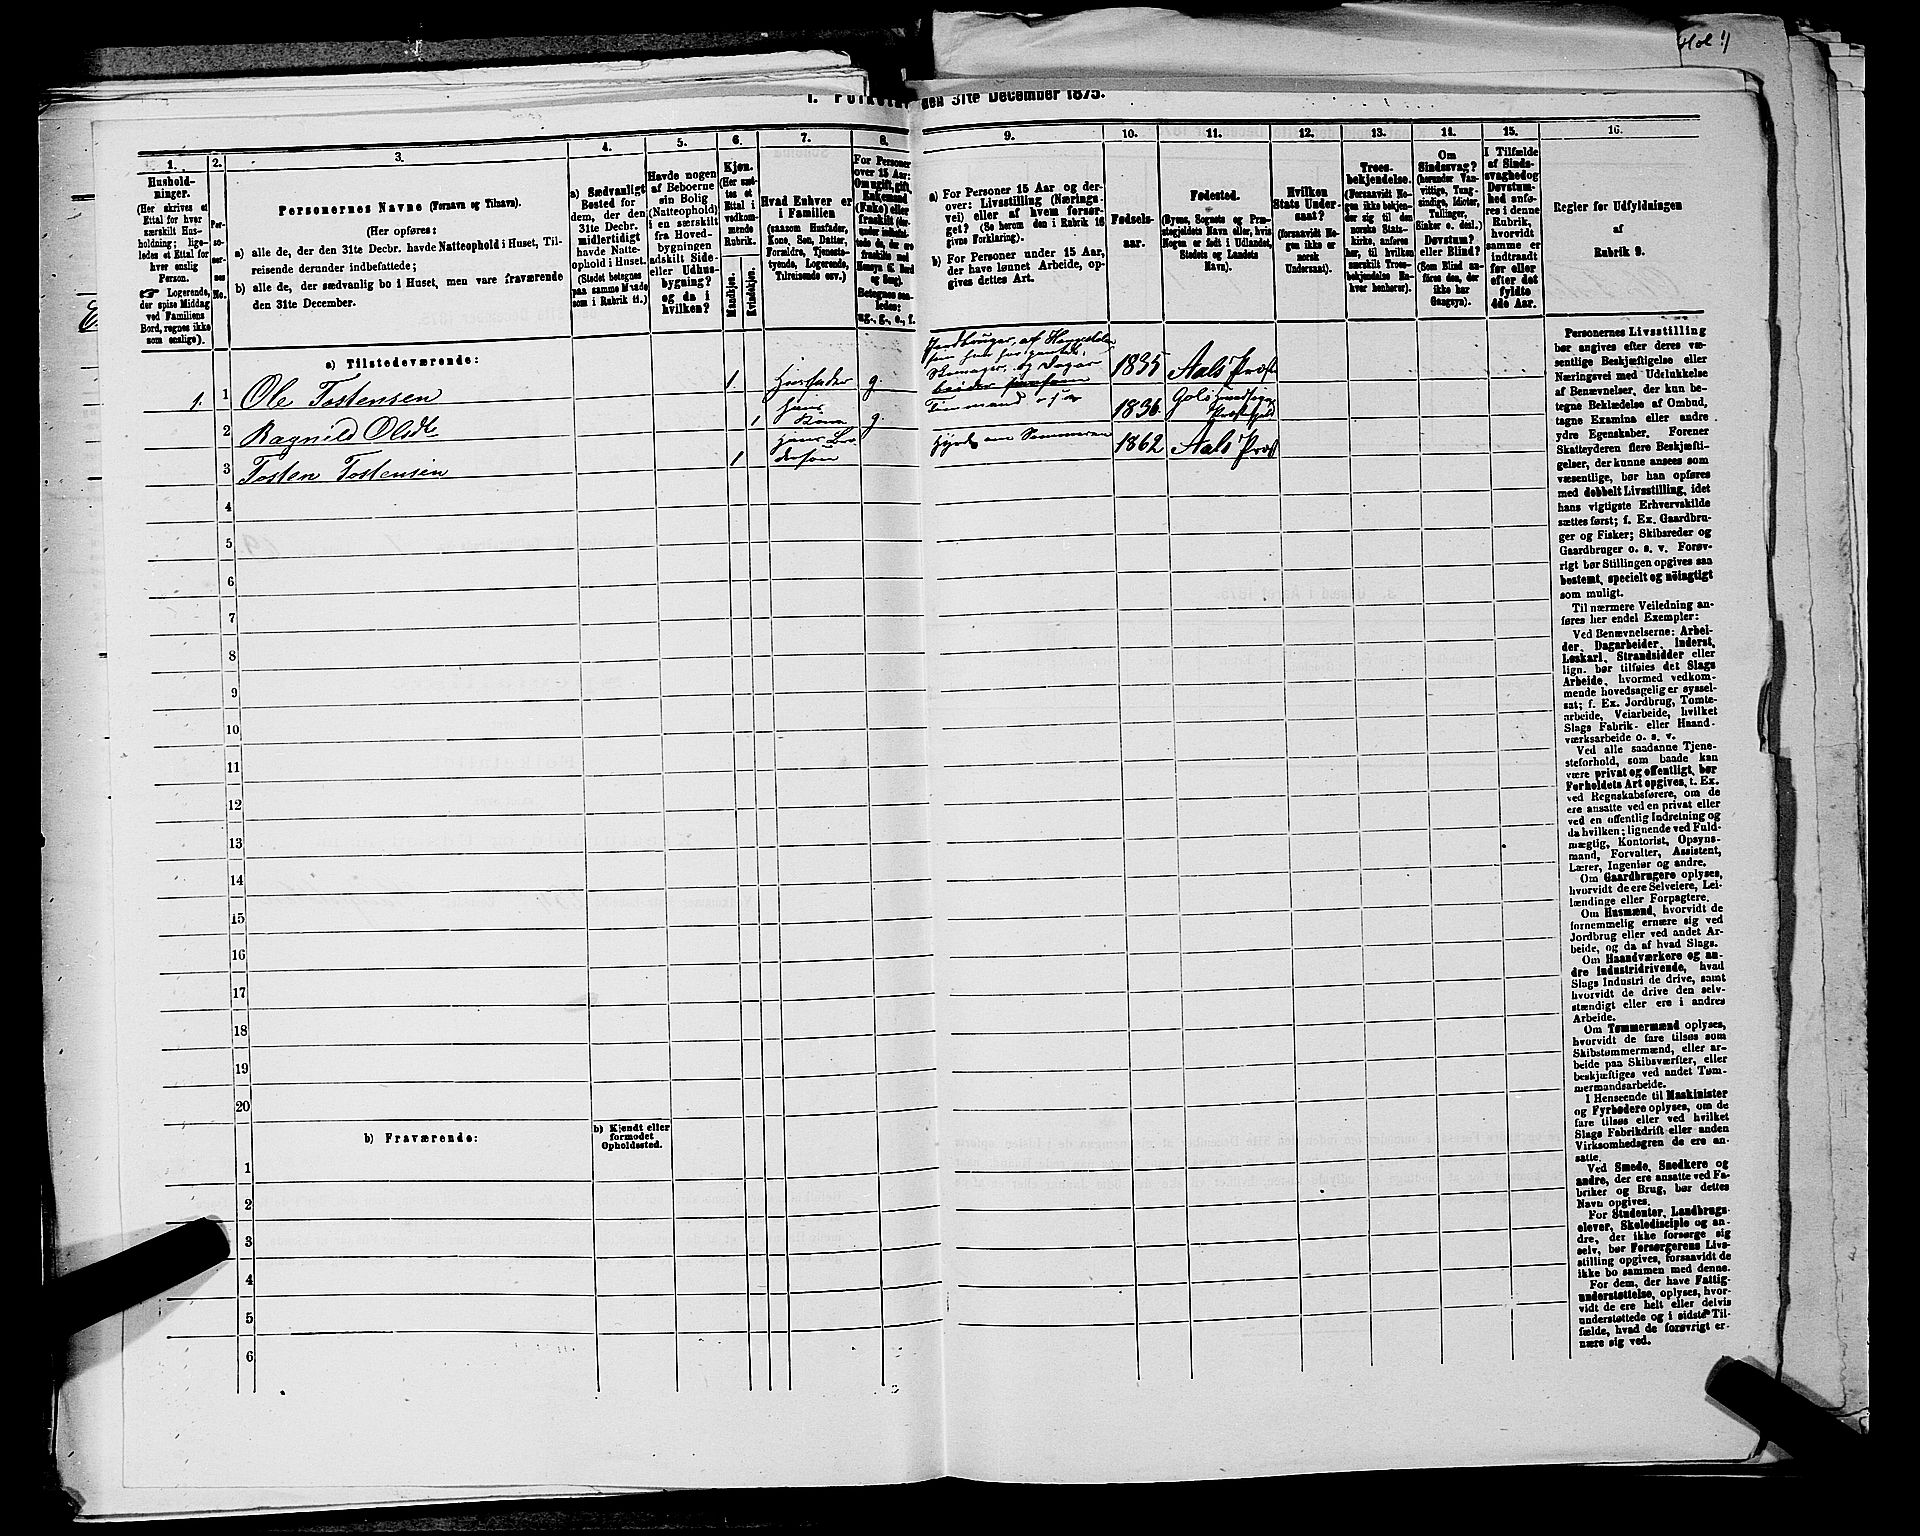 Hol 1)
1. Folketæ den 31te December 1875.
1.
Hushold-
ninger.
(Her skrives et
Ettal for hver
særskilt Hus-
holdning; lige-
ledes et Ettal for
hver enslig
Person.
☞ Logerende,
der spise Middag
ved Familiens
Bord, regnes ikke
som enslige).
2.
Per-
so-
ner-
nes
No.
3.
Personernes Navne (Fornavn og Tilnavn).
(Her opføres:
a) alle de, der den 31te Decbr. havde Natteophold i Huset, Til-
reisende derunder indbefattede;
b) alle de, der sædvanlig bo i Huset, men vare fraværende
den 31te December.
4.
a) Sædvanligt
Bosted for
dem, der den
31te Decbr.
midlertidigt
havde Natte-
ophold i Huset.
(Stedet betegnes
paa samme Maade
som i Rubrik 11.)
5.
Havde nogen
af Beboerne
sin Bolig
(Natteophold)
i en særskilt
fra Hoved-
bygningen
adskilt Side-
eller Udhus-
bygning?
og da i
hvilken?
6.
Kjøn.
(Her sæt-
tes et
Ettal i
vedkom-
mende
Rubrik.
Mandkjøn.
Kvindekjøn.
7.
Hvad Enhver er
i Familien
(saasom Husfader,
Kone, Søn, Datter,
Forældre, Tjeneste-
tyende, Logerende,
Tilreisende osv.)
8.
For Personer
over 15 Aar:
Om ugift, gift,
Enkemand
(Enke) eller
fraskilt (der-
under indbefat-
tede de, der ere
fraskilte med
Hensyn til Bord
og Seng).
Betegnes saa-
ledes:
ug., g., e., f.
9.
a) For Personer 15 Aar og der-
over: Livsstilling (Nærings-
vei) eller af hvem forsør-
get? (Se herom den i Rubrik 16
givne Forklaring).
b) For Personer under 15 Aar,
der have lønnet Arbeide, op-
gives dettes Art.
10.
Fødsels-
aar.
11.
Fødested.
(Byens, Sognets og Præ-
stegjeldets Navn eller, hvis
Nogen er født i Udlandet,
Stedets og Landets
Navn).
12.
Hvilken
Stats Under-
saat?
(forsaavidt No-
gen ikke er
norsk
Undersaat).
13.
Troes-
bekjendelse.
(Forsaavidt No-
gen ikke bekjen-
der sig til den
norske Stats-
kirke, anføres
her, til hvilken
særskilt Troes-
bekjendelse En-
hver henhører).
14.
Om
Sindssvag?
(herunder Van-
vittige, Tung-
sindige, Idioter,
Tullinger,
Sinker o. desl.)
Døvstum?
eller Blind?
(Som Blind an-
føres den, der
ikke har
Gangsyn).
15.
I Tilfælde
af Sinds-
svaghed og
Døvstum-
hed anfø-
res i denne
Rubrik,
hvorvidt
samme er
indtraadt
før eller
efter det
fyldte
4de Aar.
16.
Regler for Udfyldningen
af
Rubrik 9.
a) Tilstedeværende:
1. 1 Ole Tostensen 1 Husfader g. 1835 Aals Præst
Skomager, og Dagar
2 Ragnild Olsdt hans Kone 1 g. 1836 Gols
3 Tosten Tostensen 1 hans Bro
dersøn Hyrde om Sommeren 1862 Aals Præst
4
5
6
7
8
9
10
11
12
13
14
15
16
17
18
19
20
b) Fraværende:
b) Kjendt eller
formodet
Opholdssted.
1
2
3
4
5
6
Personernes Livsstilling
bør angives efter deres væ-
sentlige Beskjæftigelse eller
Næringsvei med Udelukkelse
af Benævnelser, der kun be-
tegne Beklædelse af Ombud,
tagne Examina eller andre
ydre Egenskaber. Forener
Skatteyderen flere Beskjæfti-
gelser, der kunne ansees som
væsentlige, bør han opføres
med dobbelt Livsstilling, idet
hans vigtigste Erhvervskilde
sættes først; f. Ex. Gaardbru-
ger og Fisker; Skibsreder og
Gaardbruger o. s. v. Forøv-
rigt bør Stillingen opgives saa
bestemt, specielt og nöiagtigt
som muligt.
Til nærmere Veiledning an-
føres her endel Exempler:
Ved Benævnelserne: Arbei-
der, Dagarbeider, Inderst,
Løskarl, Strandsidder eller
lign. bør tilføies det Slags
Arbeide, hvormed vedkom-
mende hovedsagelig er syssel-
sat; f. Ex. Jordbrug, Tomte-
arbeide, Veiarbeide, hvilket
Slags Fabrik- eller Haand-
værksarbeide o. s. v.
Ved alle saadanne Tjene-
steforhold, som baade kan
være privat og offentligt, bør
Forholdets Art opgives, t. Ex.
ved Regnskabsførere, om de
ere ansatte ved en privat eller
ved en offentlig Indretning og
da hvilken; lignende ved Fuld-
mægtig, Kontorist, Opsyns-
mand, Forvalter, Assistent,
Lærer, Ingeniør og andre.
Om Gaardbrugere oplyses,
hvorvidt de ere Selveiere, Lei-
lændinge eller Forpagtere.
Om Husmænd, hvorvidt de
fornemmelig ernære sig ved
Jordbrug eller ved andet Ar-
beide, og da af hvad Slags.
Om Haandværkere og an-
dre Industridrivende, hvad
Slags Industri de drive, samt
hvorvidt de drive den selv-
stændigt eller ere i andres
Arbeide.
Om Tømmermænd oplyses,
hvorvidt de fare tilsøs som
Skibstømmermænd, eller ar-
beide paa Skibsværfter, eller
beskjæftiges ved andet Tøm-
mermandsarbeide.
I Henseende til Maskinister
og Fyrbødere oplyses, om de
fare tilsøs eller ved hvilket
Slags Fabrikdrift eller anden
Virksomhedsgren de ere an-
satte.
Ved Smede, Snedkere og
andre, der ere ansatte ved Fa-
briker og Brug, bør dettes
Navn opgives.
For Studenter, Landbrugs-
elever, Skoledisciple og an-
dre, der ikke forsørge sig
selv, bør Forsørgerens Livs-
stilling opgives, forsaavidt de
ikke bo sammen med denne.
For dem, der have Fattig-
understøttelse, oplyses, hvor-
vidt de ere helt eller delvis
understøttede og i sidste Til-
fælde, hvad de forøvrigt er-
nære sig ved.